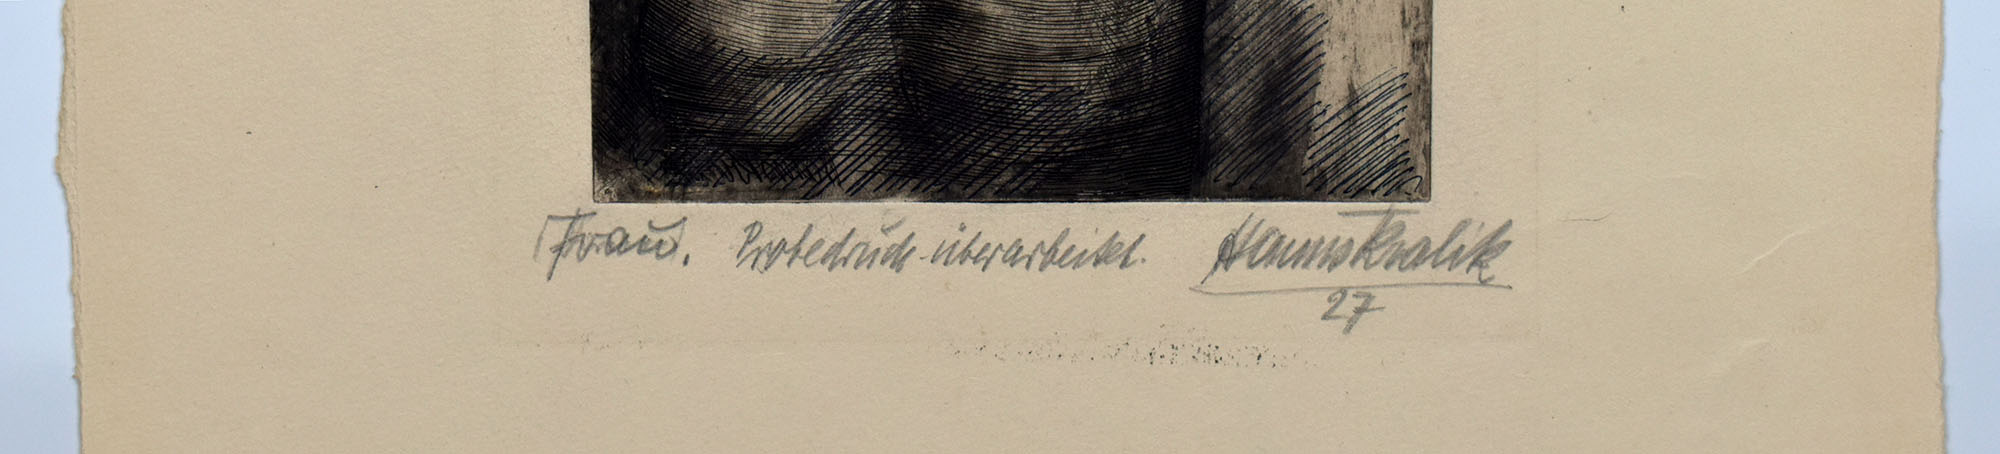 Frau. Probedruck überarbeitet. Hanns Kralik
27